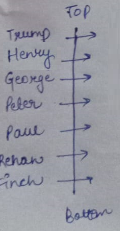 TOP
Trump
Henry
George
Peter
Paul
Rehan
Finch
Bottom